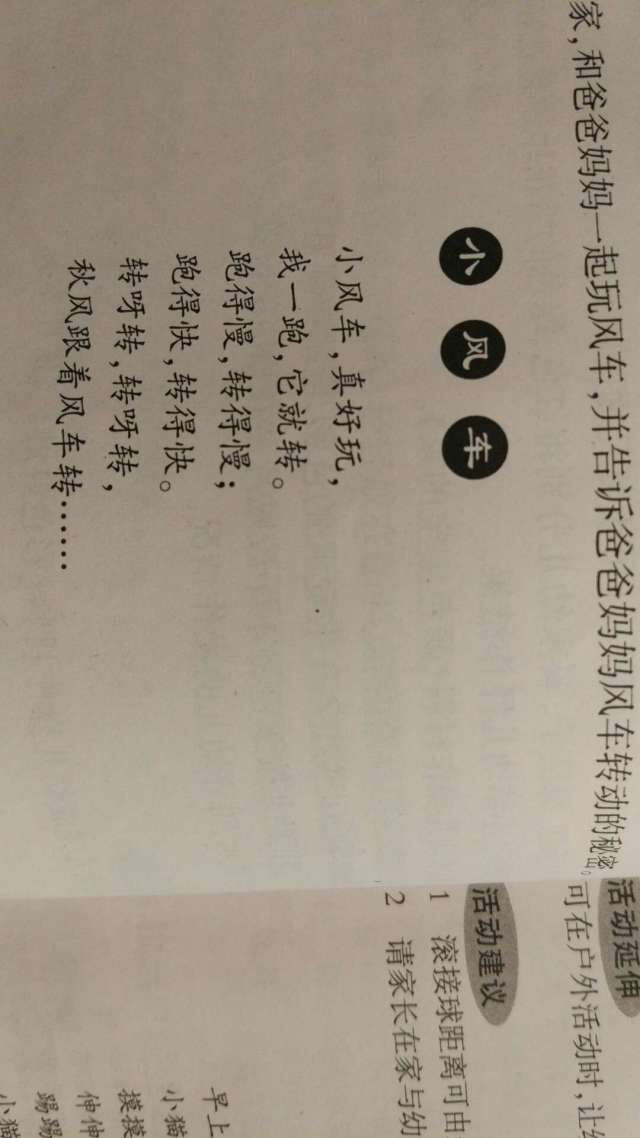 家,和爸爸妈妈一起玩风车,并告诉爸爸妈妈风车转动的秘密。
小风车
小风车,真好玩,
我一跑,它就转。
跑得慢,转得慢;
跑得快,转得快。
转呀转,转呀转,
秋风跟着风车转……
活动延伸
可在户外活动时,让
活动建议
1 滚接球距离可由
2 请家长在家与幼
早上
小猫
摸摸
伸伸
踢踢
小猫